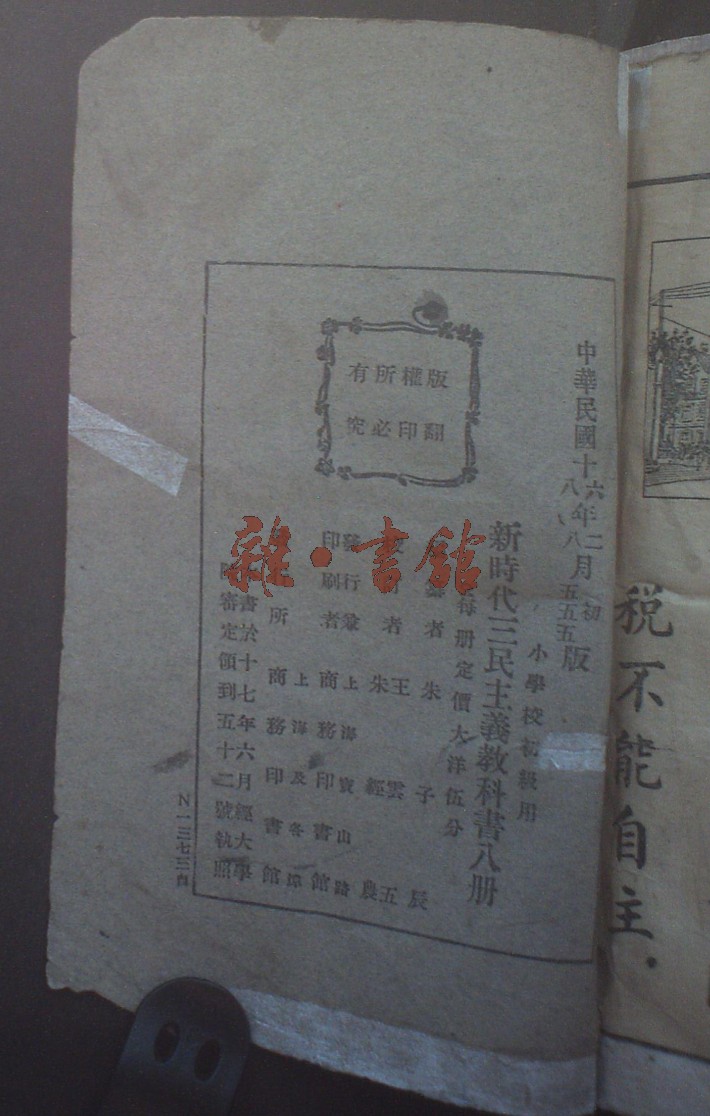 中華民國十六年二月初版
八八五五五
小學校初級用
新時代三民主義教科書八册
每册定價大洋伍分
者 朱子辰
者 王雲五
者 朱經農
發行兼印刷者
上海寶山路
商務印書館
所
上海及各埠
商務印書館
書於十七年六月經大學
審定領到五十二號執照
版權所有
翻印必究
N一三七三自
雜·書館
稅不能自主.